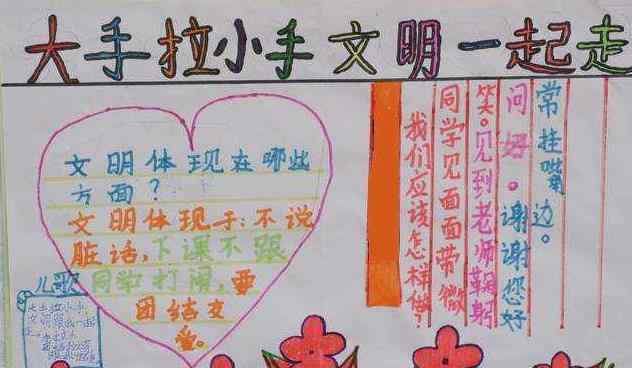 大手拉小手文明一起走
文明体现在哪些
方面？
文明体现于：不说
脏话，下课不跟
同学打闹，要
团结友
爱。
儿歌
大手拉小手，
文明跟我一起
走。
我们应该怎样做？
同学见面面带微
笑。见到老师鞠躬
问好。谢谢您好
常挂嘴边。